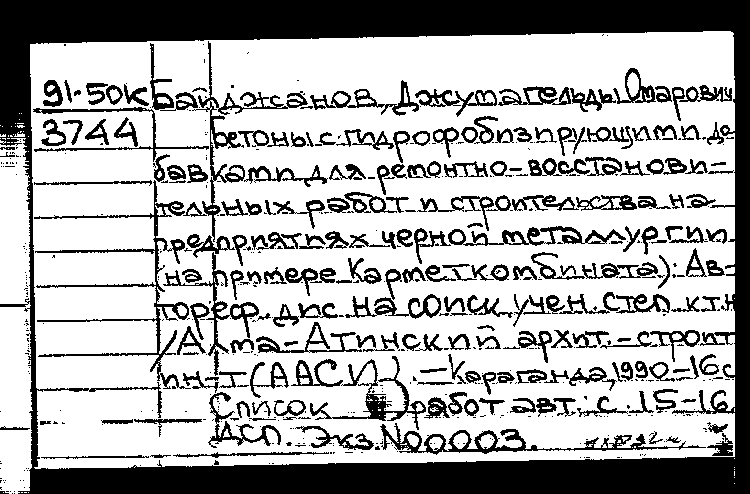 91-50к Байджанов, Джумагельды Омарович
3744 Бетоны с гидрофобизирующими до-
бавками для ремонтно-восстанови-
тельных работ и строительства на
предприятиях черной металлургии
(на примере Карметкомбината): Ав-
тореф. дис. на соиск. учен. степ. к.т.н
/Алма-Атинский архит.-строит
ин-т (ААСИ). - Караганда, 1990-16с
Список работ авт.: с. 15-16.
ДСП. Экз. N00003.